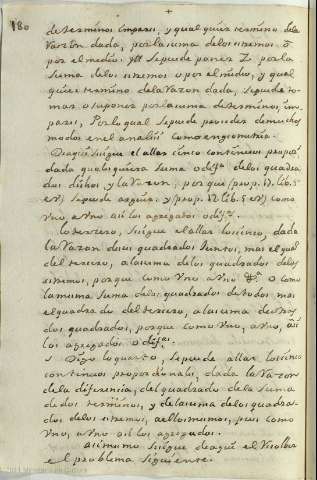 180
de terminos impares, y qualquier termino dela
razon dada, por la suma delos estremos, o
por el medio, ytt sepuede poner Z por la
suma delos estremos o por el medio, y qual
quier termino dela razon dada, sepuede to-
mar o suponer por la suma de terminos im-
pares, Por lo qual sepuede proceder de muchos
modos en el analisis como en geometria.
De aqui se sigue el allar cinco continuos propor
dada qualquiera suma o de los quadra-
dos dichos y la razon, porque (prop. 17. lib. 5
) sepuede arguir. y (prop. 12 lib. 5 ) como
vno, a vno asi los agregados
lo tercero, se sigue el allar los cinco, dada
la razon de sus quadrados juntos, mas el qua.
del tercero, a la suma delos quadrados delos
estremos, porque como vno a vno o como
la misma suma delos quadrados de todos, mas
el quadrado del tercero, a la suma de otros
dos quadrados, porque como vno, a vno, asi
los agregados
Digo lo quarto, se puede allar los cinco
continuos proporcionales, dada la razon
de la diferencia, del quadrado de la suma
de dos terminos, y de la suma de los quadra-
dos delos estremos, a ellos mismos, pues como
vno, a vno asi los agregados.
asimismo se sigue de aqui el resolver
el problema siguiente.